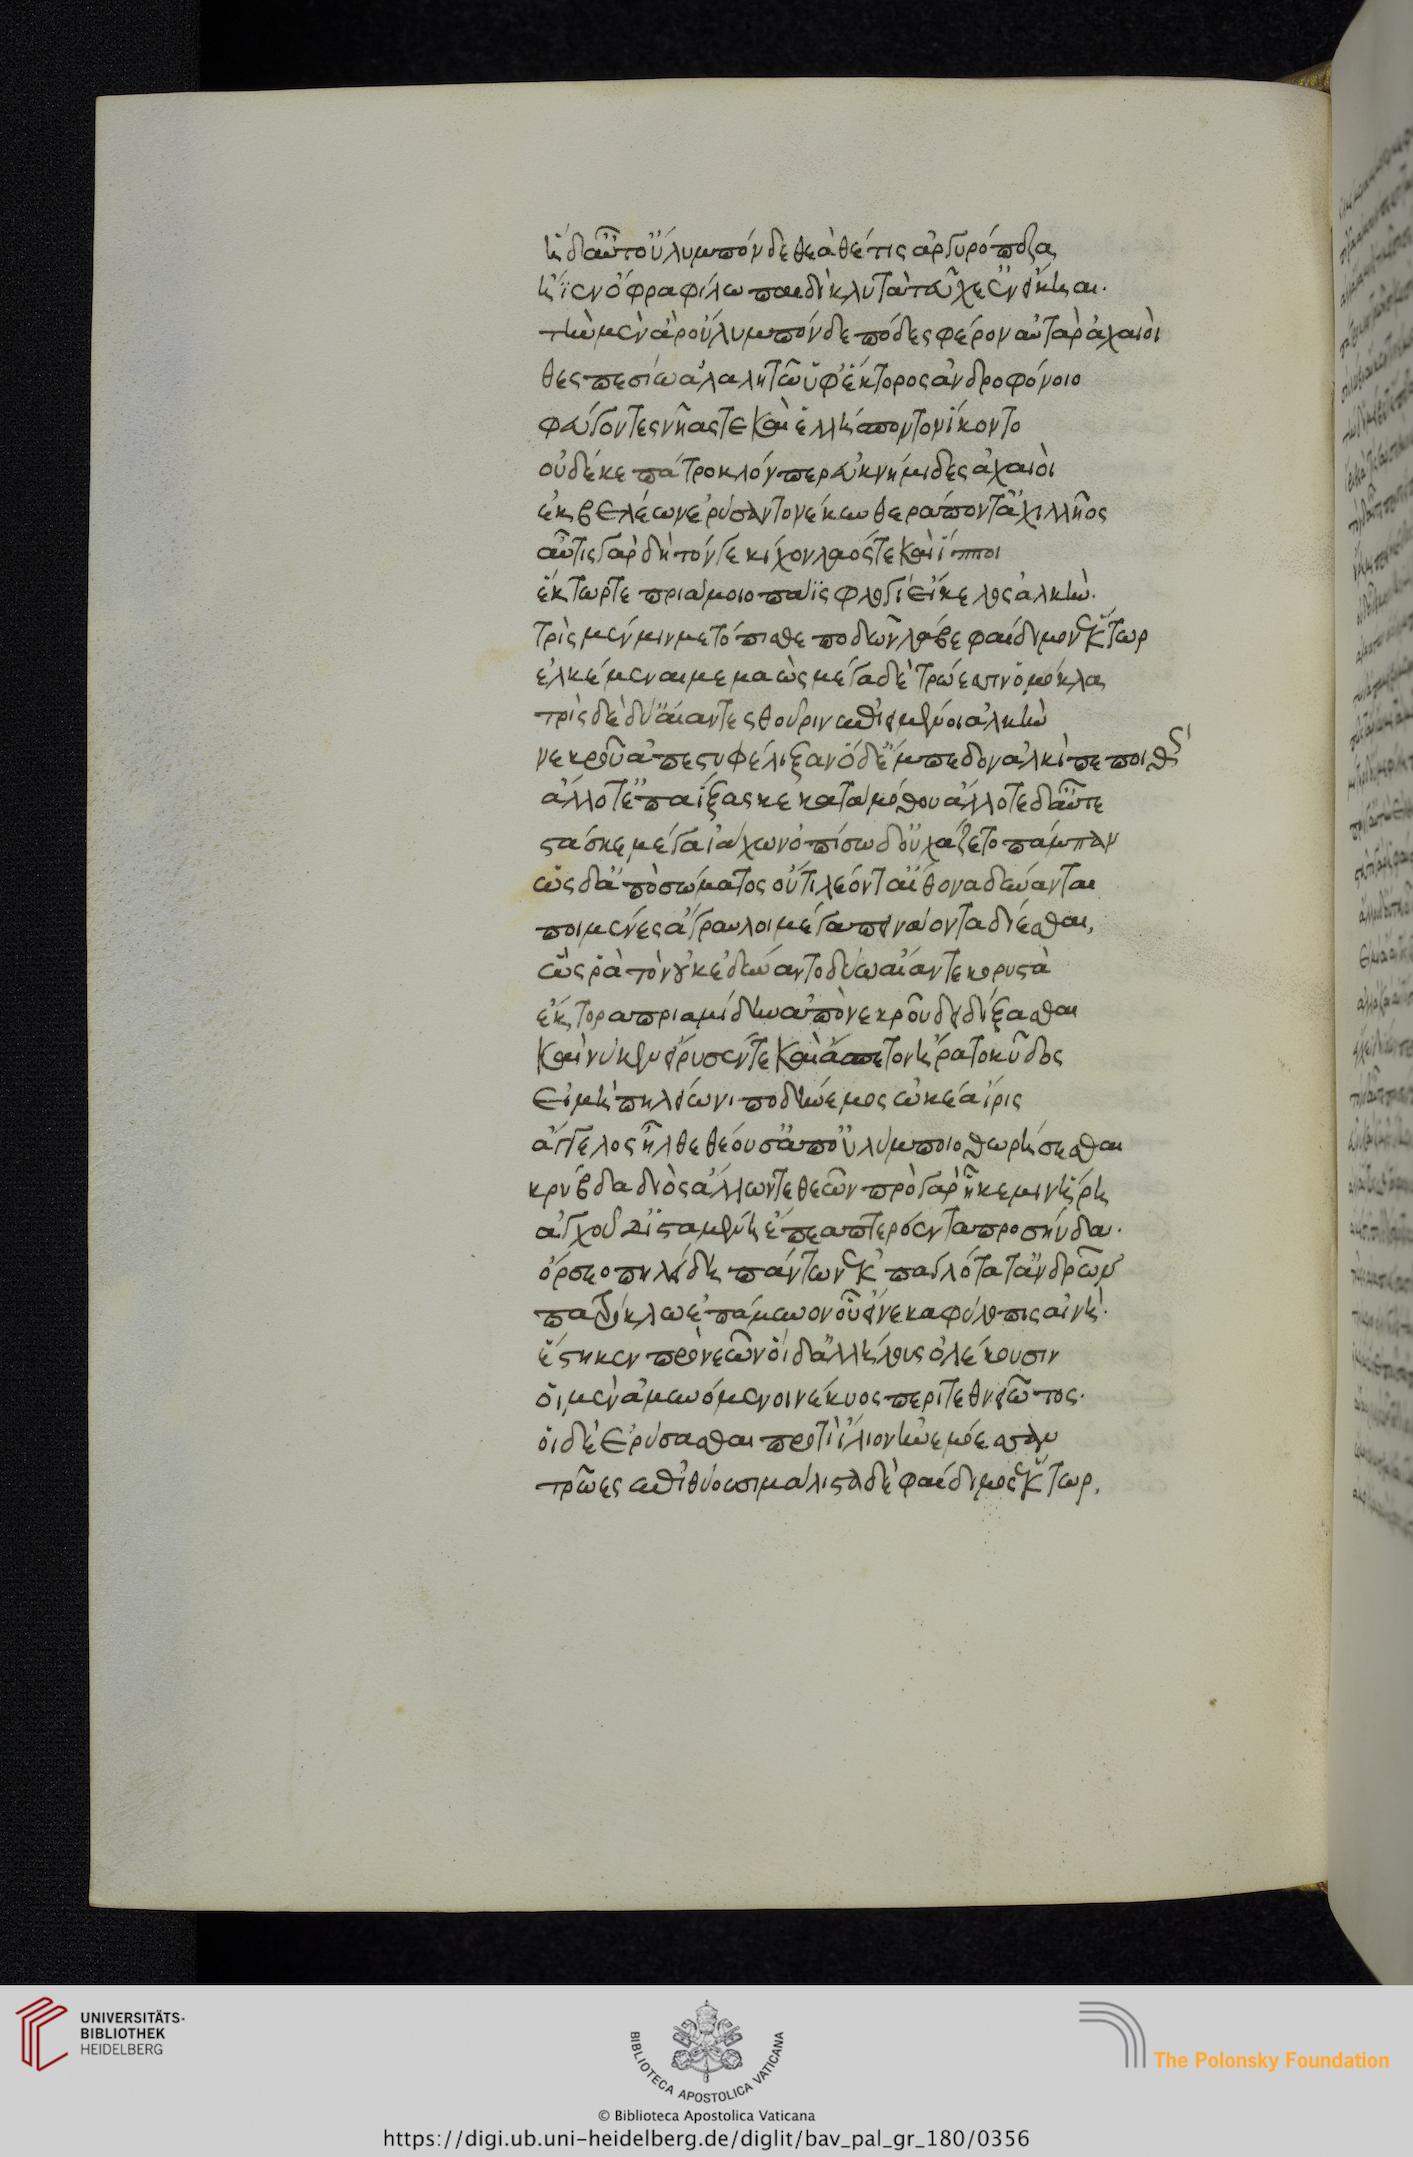 ἡ δ' αὖτ' οὔλυμπόνδε θεὰ θέτις ἀργυρόπεζα
ἤϊεν ὄφρα φίλω παιδὶ κλυτὰ τεύχε' ἐνείκαι.
τὴν μὲν ἀρ' οὔλυμπόνδε πόδες φέρον αὐτὰρ ἀχαιοὶ
θεσπεσίω ἀλαλητῶ ὑφ' ἕκτορος ἀνδροφόνοιο
φεύγοντες νῆάς τε καὶ ἑλλήσποντον ἵκοντο
οὐδέ κε πάτροκλόν περ ἐϋκνήμιδες ἀχαιοὶ
ἐκ βελέων ἐρύσαντο νέκυν θεράποντ' ἀχιλλῆος
αὖτις γὰρ δὴ τόν γε κίχον λαός τε καὶ ἵπποι
ἕκτωρ τε πριάμοιο παῖς φλογὶ εἴκελος ἀλκὴν.
τρὶς μέν μιν μετόπισθε ποδῶν λάβε φαίδιμος ἕκτωρ
ἑλκέμεναι μεμαὼς μέγα δὲ τρώεσσιν ὁμόκλα
τρὶς δὲ δύ' αἴαντες θοῦριν ἐπιειμένοι ἀλκὴν
νεκροῦ ἀπεστυφέλιξαν ὁ δ' ἔμπεδον ἀλκὶ πεποιθὼς
ἄλλοτ' ἐπαΐξασκε κατὰ μόθον ἄλλοτε δ' αὖτε
στάσκε μέγα ἰάχων ὀπίσω δ' οὐ χάζετο πάμπαν
ὡς δ' ἀπὸ σώματος οὔτι λέοντ' αἴθονα δύνανται
ποιμένες ἄγραυλοι μέγα πεινάοντα δίεσθαι,
ὥς ῥα τὸν οὐκ ἐδύναντο δύω αἴαντε κορυστὰ
ἕκτορα πριαμίδην ἀπὸ νεκροῦ δειδίξασθαι
καὶ νύ κεν εἴρυσέν τε καὶ ἄσπετον ἤρατο κῦδος
εἰ μὴ πηλείωνι ποδήνεμος ὠκέα ἶρις
ἄγγελος ἦλθε θέουσ' ἀπ' οὐλύμποιο θωρήσσεσθαι
κρύβδα διὸς ἄλλων τε θεῶν πρὸ γὰρ ἧκέ μιν ἥρη
ἀγχοῦ δ' ἱσταμένη ἔπεα πτερόεντα προσηύδα.
ὄρσεο πηλείδη πάντων ἐκπαγλότατ' ἀνδρῶν
πατρόκλω ἐπάμυνον οὗ εἵνεκα φύλοπις αἰνὴ.
ἕστηκεν πρὸ νεῶν οἱ δ' ἀλλήλους ὀλέκουσιν
οἱ μὲν ἀμυνόμενοι νέκυος περὶ τεθνειῶτος.
οἱ δὲ ἐρύσασθαι προτὶ ἴλιον ἠνεμόεσσαν
τρῶες ἐπιθύουσι μάλιστα δὲ φαίδιμος ἕκτωρ.
UNIVERSITÄTS-
BIBLIOTHEK
HEIDELBERG
BIBLIOTECA APOSTOLICA VATICANA
The Polonsky Foundation
© Biblioteca Apostolica Vaticana
https://digi.ub.uni-heidelberg.de/diglit/bav_pal_gr_180/0356